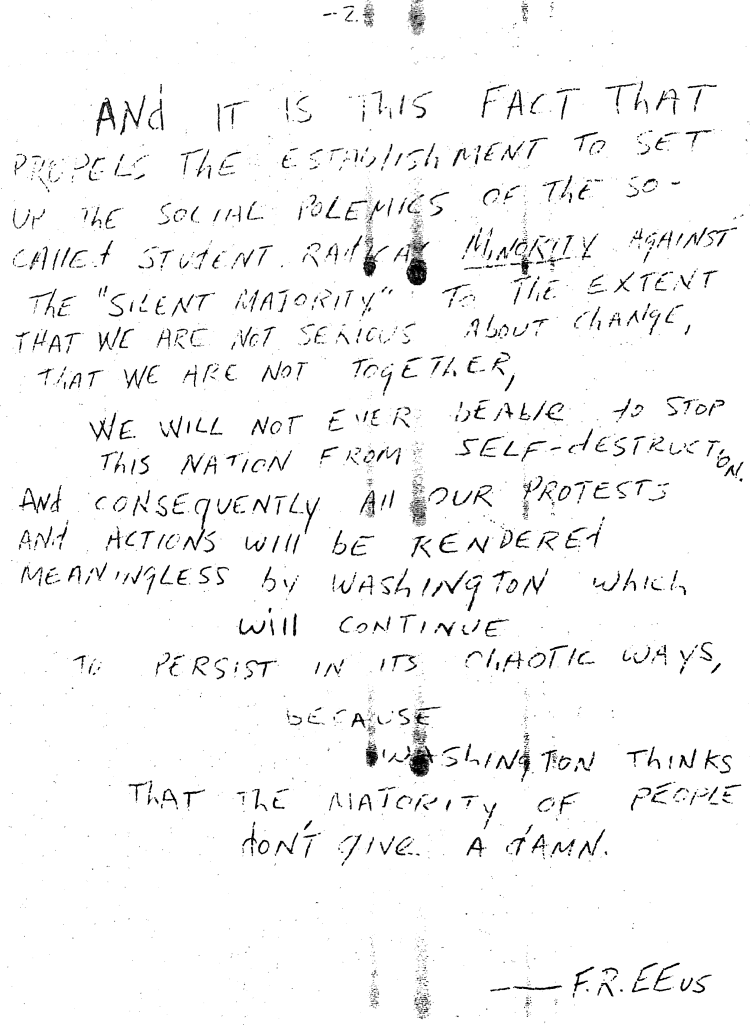 -- 2.
ANd IT IS ThIS FACT ThAT
PROPELS ThE ESTAblIShMENT To SET
UP ThE SOCIAL POLEMICS OF ThE SO-
CAllEd STUdENT RAdICAL MINORITY AGAINST
ThE "SILENT MAJORITY" To ThE EXTENT
THAT WE ARE NOT SERIOUS AbOUT ChANGE,
ThAT WE ARE NOT TOgETHER,
WE WILL NOT EVER bEAble to STOP
ThIS NATION FROM SELF-dESTRUCTION.
ANd CONSEqUENTLY All OUR PROTESTS
ANd ACTIONS WIll bE RENDEREd
MEANINGLESS by WAShINgTON which
will CONTINUE
To PERSIST IN ITS ChAOTIC WAYS,
bECAUSE
WAShINgTON ThINKS
ThAT ThE MAJORITY OF PEOPLE
dON'T gIVe A dAMN.
—— F.R.EEus